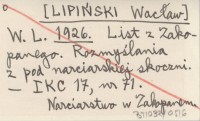 [LIPIŃSKI Wacław]
W. L. 1926. List z Zako-
panego. Rozmyślania
z pod narciarskiej skoczni.
— IKC 17, nr 71
Narciarstwo w Zakopanem.